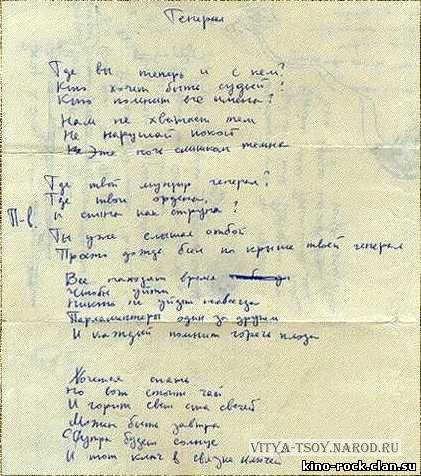 Генерал
Где вы теперь и с кем?
Кто хочет быть судьей?
Кто помнит все имена?
Нам не хватает тем
Не нарушай покой
Эта ночь слишком темна
Где твой мундир генерал?
Где твои ордена,
П-в. и спина как струна?
Ты уже слышал отбой
Просто дождь бил по крыше твоей генерал
Все находят время
Чтобы уйти
Никто не уйдет навсегда
Парламентеры один за другим
И каждый помнит горечь плода
Хочется спать
Но вот стоит чай
И горит свет ста свечей
Может быть завтра
С утра будет солнце
И тот ключ в связке ключей
VITYA-TSOY.NAROD.RU
kino-rock.clan.su